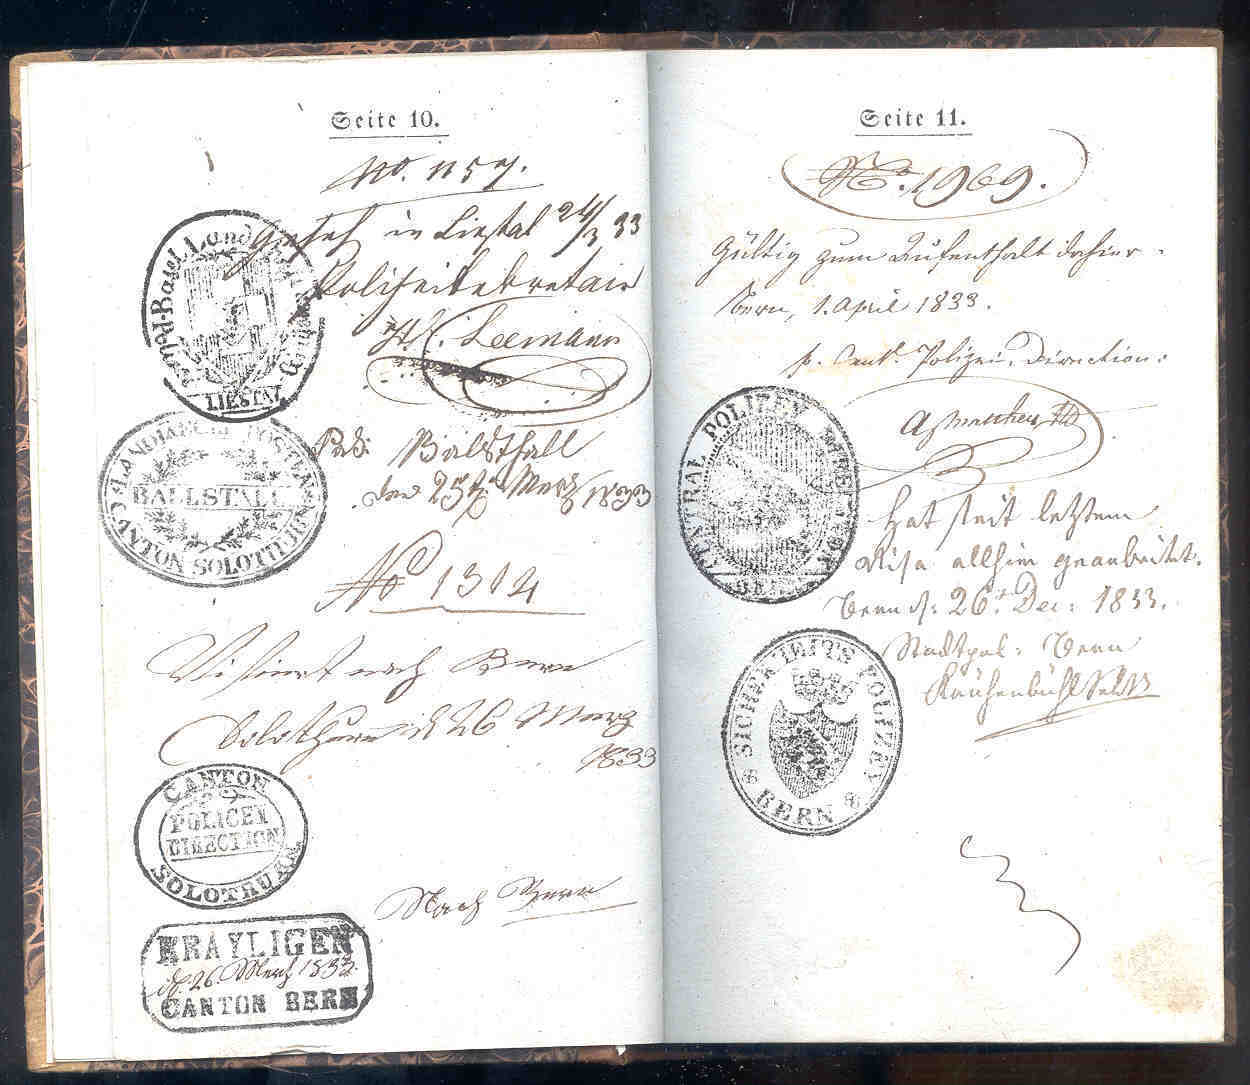 Seite 10.
No. 1157.
Gesehen in Liestal 24/3 33
Polizeisekretair
Leemann
LIESTAL
Balsthall
den 25t. Merz 1833
LANDJAEGER POSTEN
BALLSTALL
CANTON SOLOTHURN
No 1314
Visirt nach Bern
Solothurn d 26 Merz
1833
CANTON
POLICEY
DIRECTION
SOLOTHURN
Nach Bern
KRAYLIGEN
d. 26. Merz 1833.
CANTON BERN
Seite 11.
No. 1969.
Gültig zum Aufenthalt dahier.
Bern, 1. April 1833.
p. Cent. Polizei. Direction:
CENTRAL POLIZEY
BERN
Hat seit letztem
Visa allhier gearbeitet.
Bern d: 26t. Dec: 1833.
Stadtpol: Bern
SICHERHEITS POLIZEY
BERN